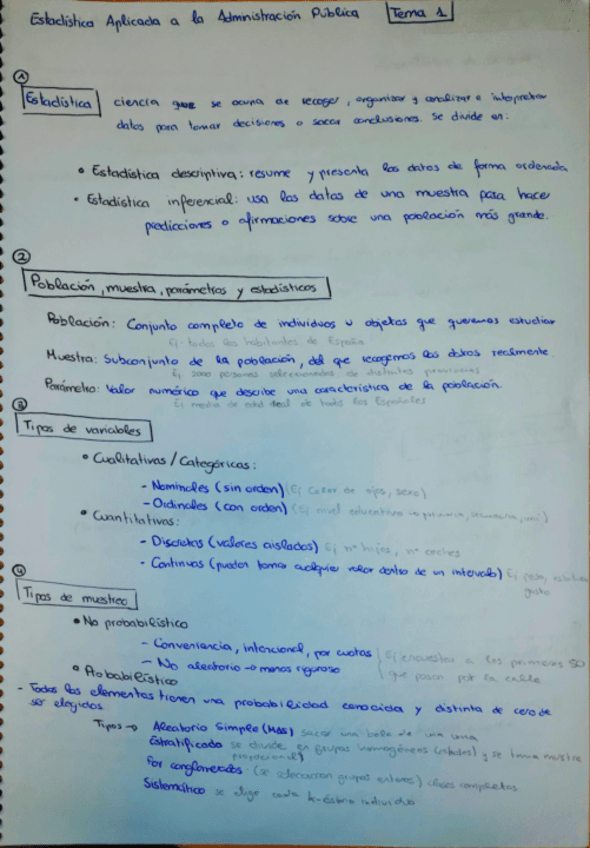 Estadística Aplicada a la Administración Pública Tema 1
1
Estadística ciencia que se ocupa de recoger, organizar y analizar e interpretar
datos para tomar decisiones o sacar conclusiones. Se divide en:
• Estadística descriptiva: resume y presenta los datos de forma ordenada
• Estadística inferencial: usa los datos de una muestra para hacer
predicciones o afirmaciones sobre una población más grande.
2
Población, muestra, parámetros y estadísticos
Población: Conjunto completo de individuos u objetos que queremos estudiar
Ej. todos los habitantes de España
Muestra: Subconjunto de la población, del que recogemos los datos realmente.
Ej. personas seleccionadas de distintas provincias
Parámetro: Valor numérico que describe una característica de la población.
Ej media de edad real de todos los Españoles
3
Tipos de variables
• Cualitativas / Categóricas:
- Nominales (sin orden) (Ej color de ojos, sexo)
- Ordinales (con orden) (Ej nivel educativo primaria, secundaria, uni)
• Cuantitativas:
- Discretas (valores aislados) Ej nº hijos, nº coches
- Continuas (pueden tomar cualquier valor dentro de un intervalo) Ej peso,
4
Tipos de muestreo
• No probabilístico
- Conveniencia, intencional, por cuotas Ej encuestar a los primeros 50
- No aleatorio → menos riguroso que pasan por la calle
• Probabilístico
- Todos los elementos tienen una probabilidad conocida y distinta de cero de
ser elegidos
Tipos → Aleatorio Simple (MAS) sacar una bola de una urna
Estratificado se divide en grupos homogéneos y se toma muestra
proporcional
Por conglomerados (se seleccionan grupos enteros) clases completas
Sistemático se elige cada k-ésimo individuo